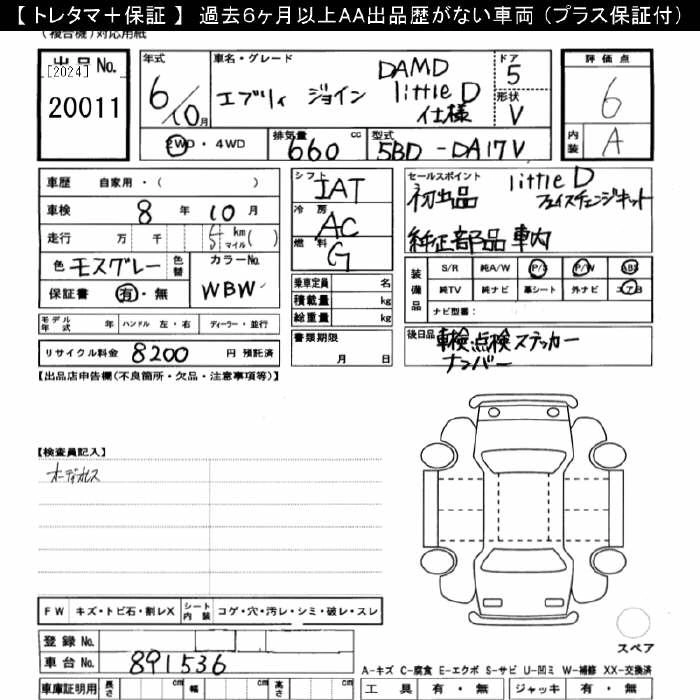 【 トレタマ＋保証 】 過去6ヶ月以上AA出品歴がない車両 (プラス保証付)
(複合機)対応用紙
出品No.
[2024]
20011
年式
6/10月
車名・グレード
エブリィ ジョイン DAMD little D 仕様
ドア
5
形状
V
評価点
6
内装
A
2WD・4WD
排気量
660 cc
型式
5BD-DA17V
車歴 自家用・( )
車検 8年 10月
走行 万 千 5 km マイル( )
色 モスグレー 色替 カラーNo.
WBW
保証書 有・無
シフト
IAT
冷房
AC
燃料
G
乗車定員 名
積載量 kg
総重量 kg
セールスポイント little D
初出品 フェイスチェンジキット
純正部品 車内
装備品
S/R 純A/W P/S P/W ABS
純TV 純ナビ 革シート 外ナビ エアB
ナビ型番:
モデル年式 年 ハンドル 左・右 ディーラー・並行
リサイクル料金 8200 円 預託済
書類期限
月 日
後日品 車検点検ステッカー
ナンバー
【出品店申告欄(不良箇所・欠品・注意事項等)】
【検査員記入】
オーディオレス
FW キズ・トビ石・割レX シート内装 コゲ・穴・汚レ・シミ・破レ・スレ
登録No.
車台No. 891536
スペア
A-キズ C-腐食 E-エクボ S-サビ U-凹ミ W-補修 XX-交換済
車庫証明用 長さ cm 幅 cm 高さ cm
工具 有・無 ジャッキ 有・無